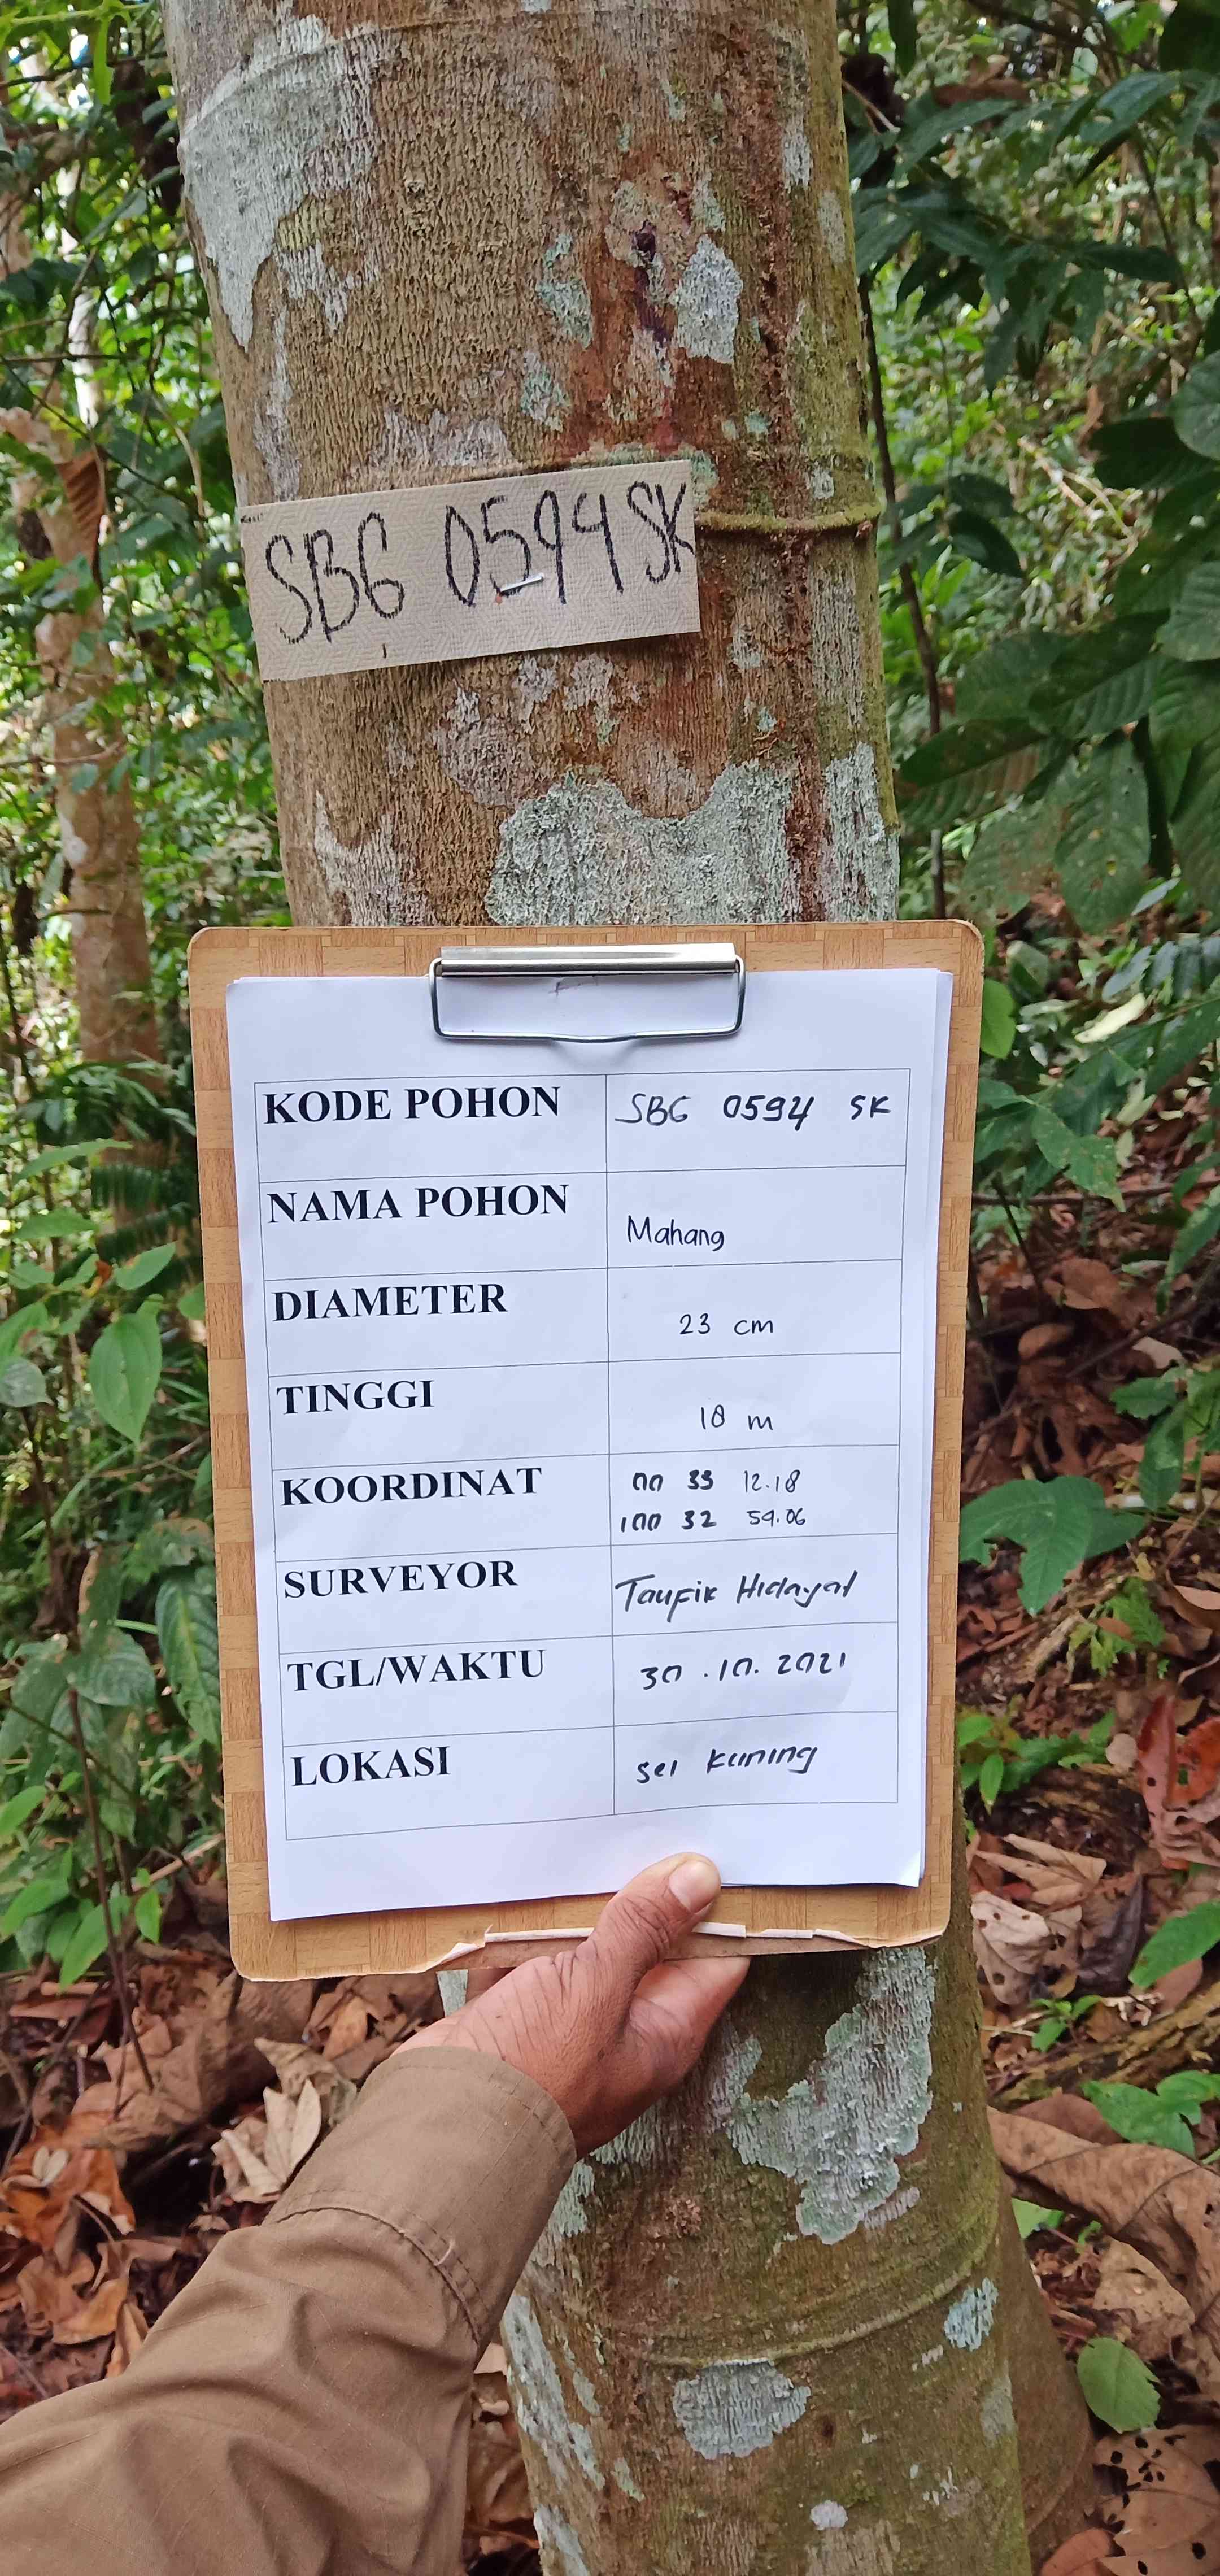 SBG 0594 SK
KODE POHON SBG 0594 SK
NAMA POHON Mahang
DIAMETER 23 cm
TINGGI 18 m
KOORDINAT 00 33 12.18
100 32 59.06
SURVEYOR Taufik Hidayat
TGL/WAKTU 30.10.2021
LOKASI Sei Kuning